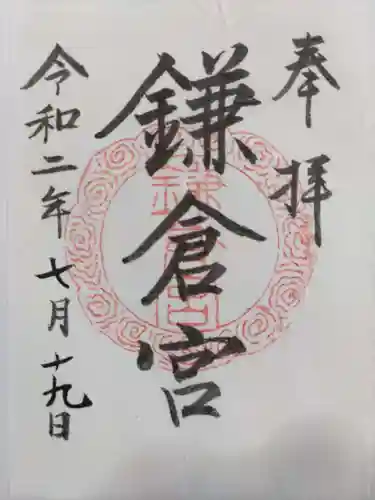 奉拝
鎌倉宮
鎌倉宮
令和二年七月十九日